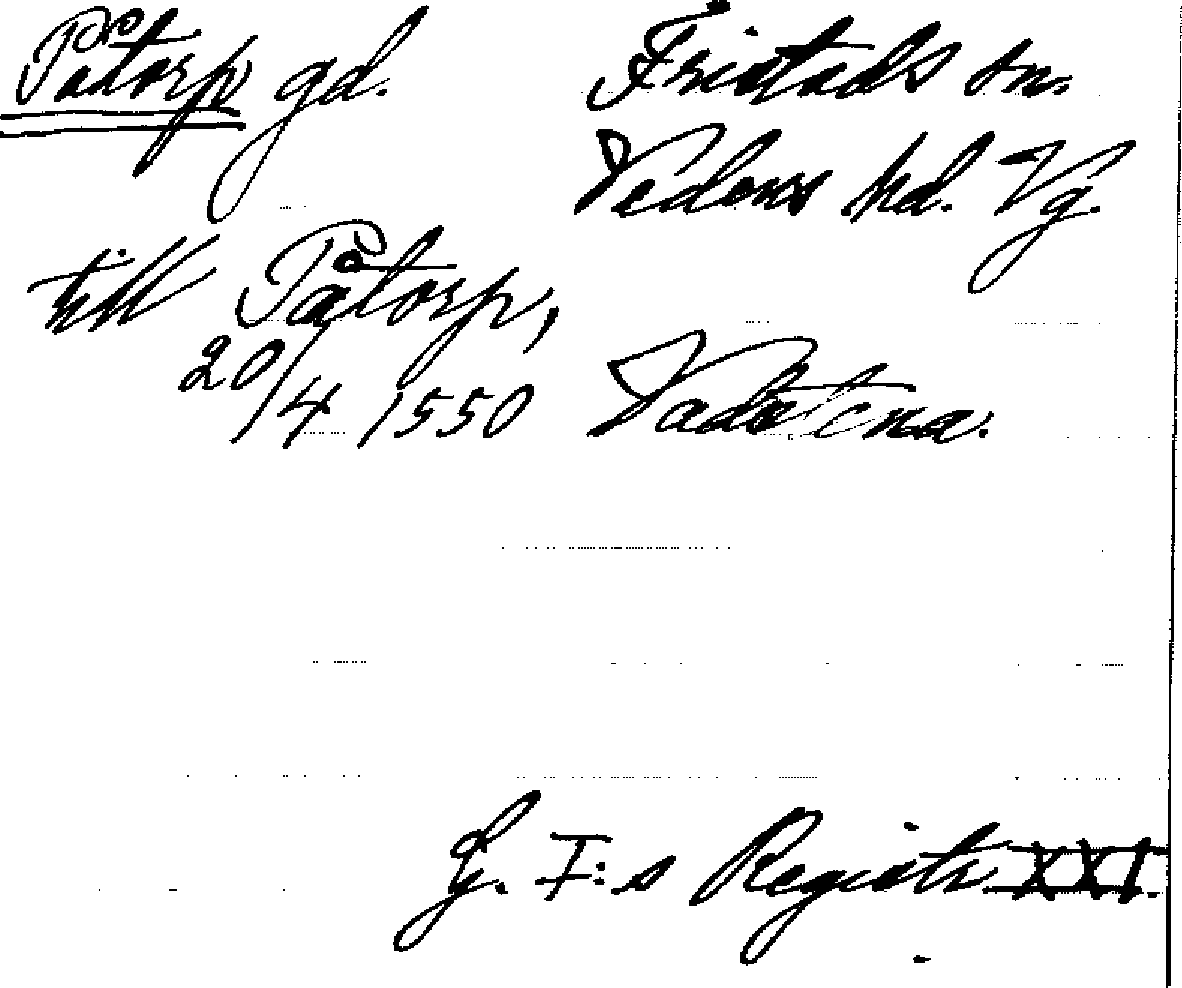 Påtorp gd. Fristads sn.
Vedens hd. Vg.
till Påtorp,
20/4 1550 Vadstena.
G. I:s Registr. XXI.